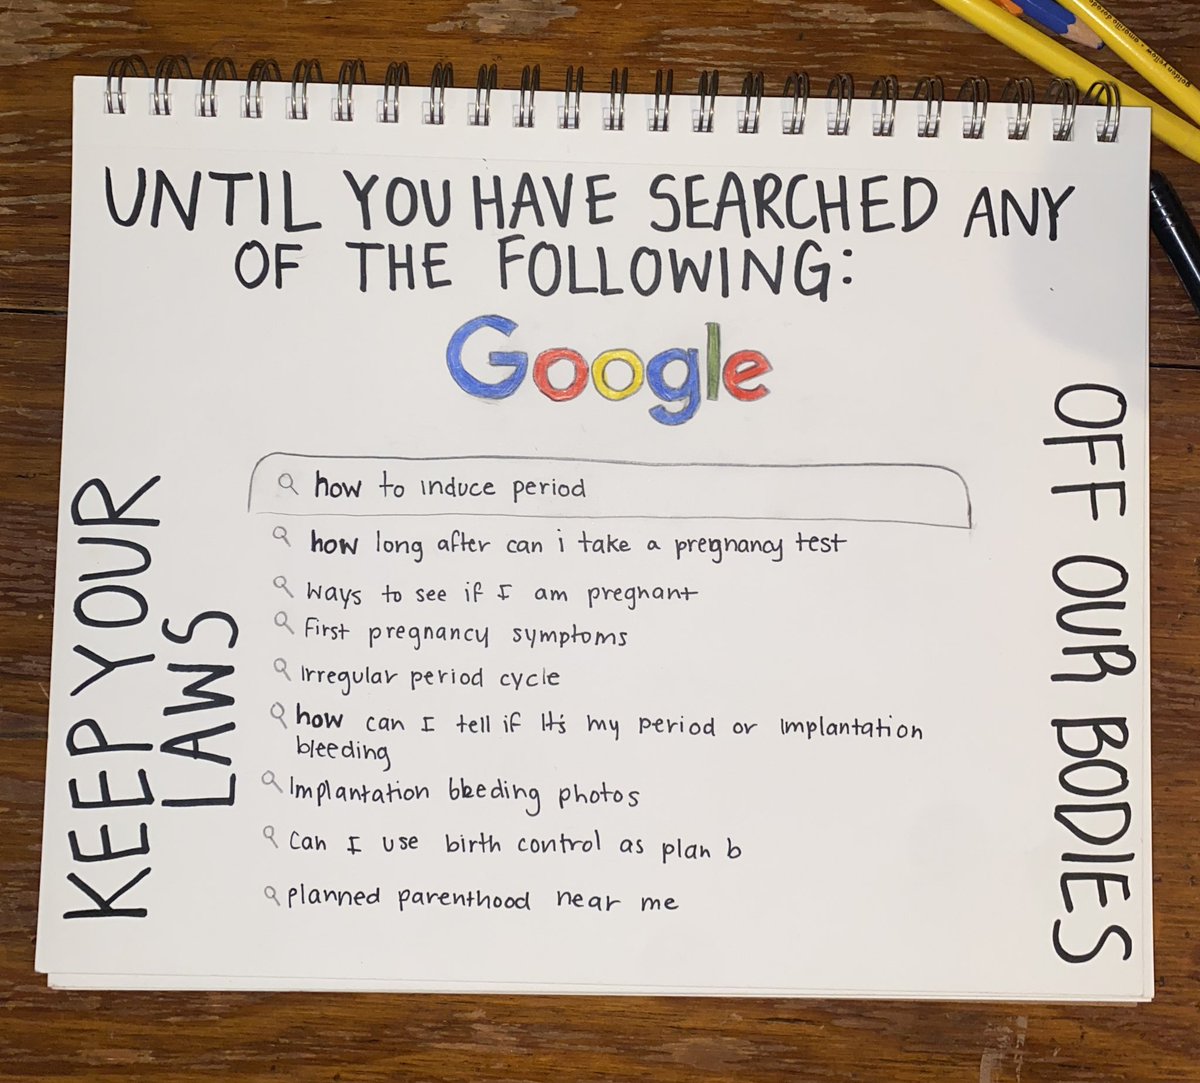 UNTIL YOU HAVE SEARCHED ANY
OF THE FOLLOWING:
Google
how to induce period
how long after can i take a pregnancy test
ways to see if I am pregnant
First pregnancy symptoms
Irregular period cycle
how can I tell if It's my period or implantation
bleeding
Implantation bleeding photos
Can I use birth control as plan b
planned parenthood near me
KEEP YOUR
LAWS
OFF OUR BODIES